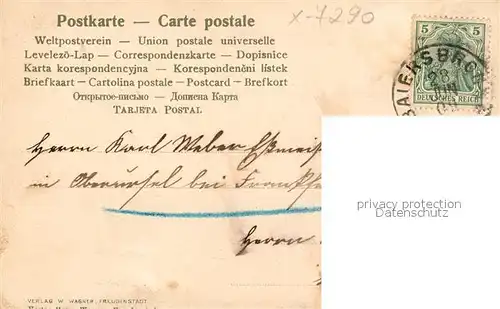 x-7290
Postkarte — Carte postale
Weltpostverein — Union postale universelle
Levelező-Lap — Correspondenzkarte — Dopisnice
Karta korespondencyjna — Korespondenční lístek
Briefkaart — Cartolina postale — Postcard — Brefkort
Открытое-письмо — Дописна Карта
Tarjeta Postal
5 5
DEUTSCHES REICH
BAIERSBRONN
28
JUN
Herrn Karl Weber
in Oberursel bei
Herrn
privacy protection
Datenschutz
VERLAG W. WAGNER, FREUDENSTADT